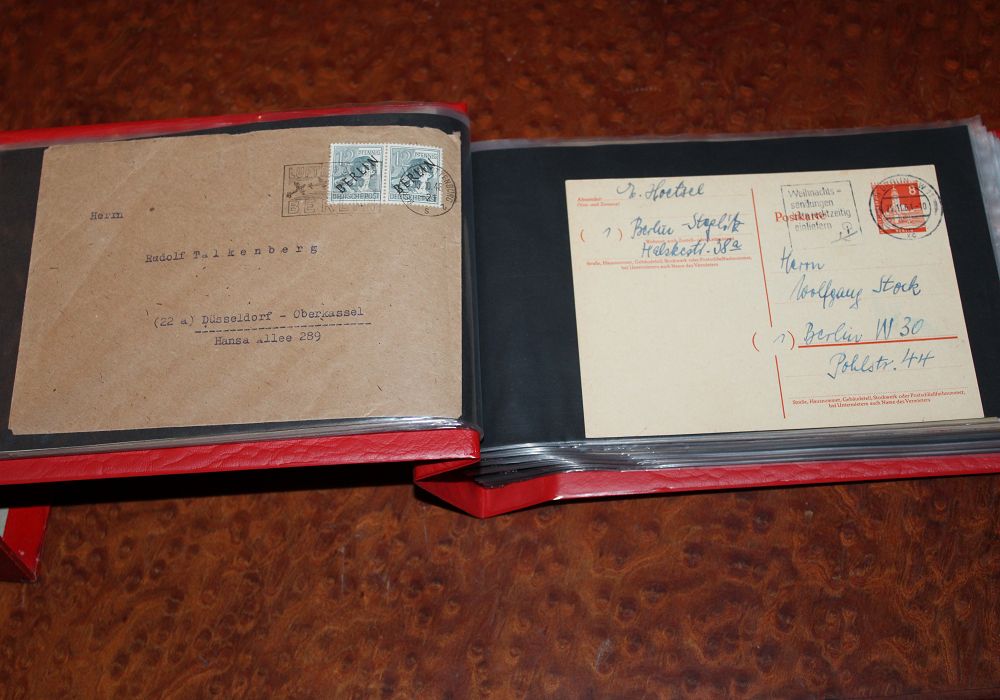 12 PFENNIG 12 PFENNIG
BERLIN BERLIN
DEUTSCHE POST DEUTSCHE POST
Herrn
Rudolf Talkenberg
(22 a) Düsseldorf - Oberkassel
Hansa Allee 289
Absender:
Hoetsel
(1) Berlin-Steglitz
Halskestr. 38a
Straße, Hausnummer, Gebäudeteil, Stockwerk oder Postschließfachnummer,
bei Untermietern auch Name des Vermieters
Weihnachts-
sendungen
rechtzeitig
einliefern
8
Postkarte
Herrn
Wolfgang Stock
(1) Berlin W 30
Pohlstr. 44
Straße, Hausnummer, Gebäudeteil, Stockwerk oder Postschließfachnummer,
bei Untermietern auch Name des Vermieters